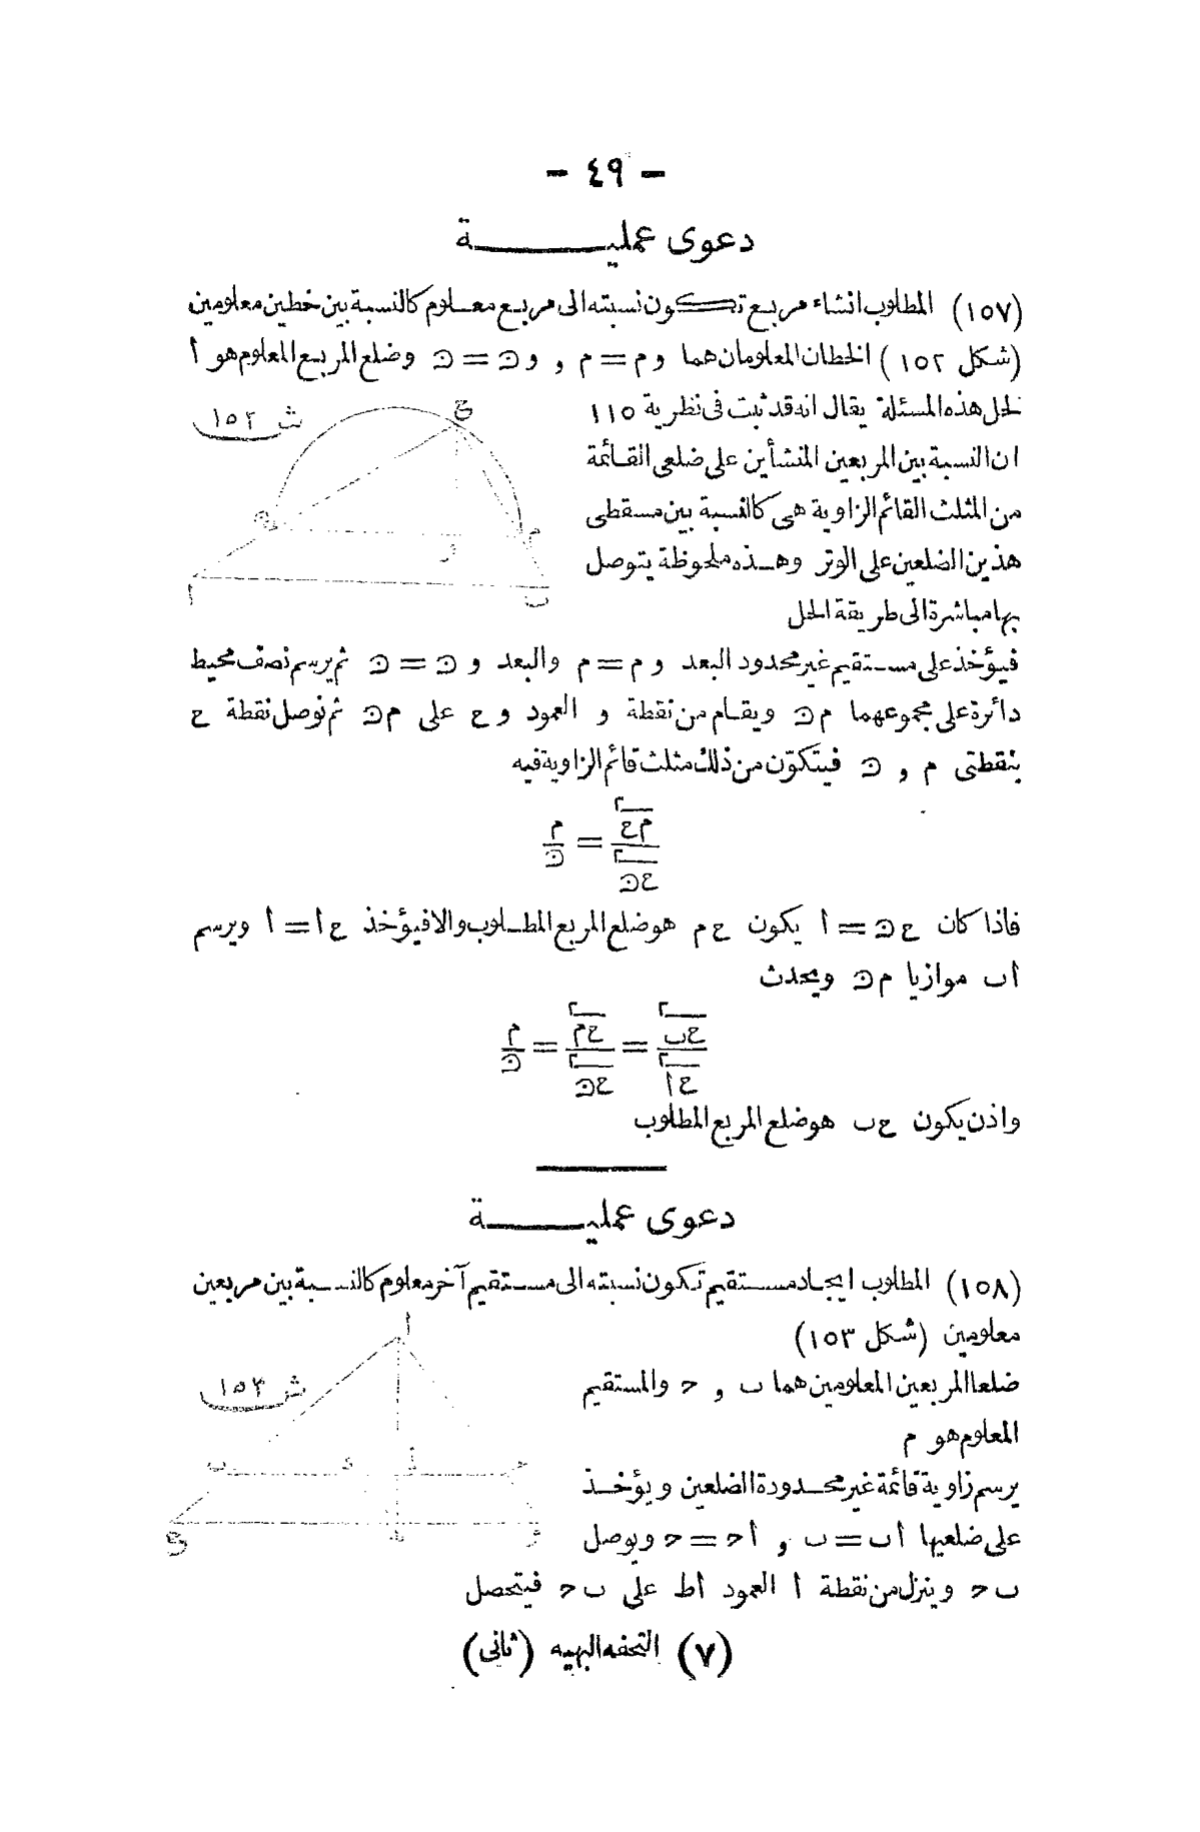 - ٤٩ -
دعوى عمليـــــــة
(١٥٧) المطلوب انشاء مربع تكون نسبته الى مربع معلوم كالنسبة بين خطين معلومين
(شكل ١٥٢) الخطان المعلومان هما وم = م , ون = ن وضلع المربع المعلوم هو أ
لحل هذه المسئلة يقال انه قد ثبت فى نظرية ١١٥
ان النسبة بين المربعين المنشأين على ضلعى القائمة
من المثلث القائم الزاوية هى كالنسبة بين مسقطى
هذين الضلعين على الوتر وهذه ملحوظة يتوصل
بها مباشرة الى طريقة الحل
ش ١٥٢
ع
ن
م
و
أ
ب
فيؤخذ على مستقيم غير محدود البعد وم = م والبعد ون = ن ثم يرسم نصف محيط
دائرة على مجموعهما م ن ويقام من نقطة و العمود وع على م ن ثم نوصل نقطة ع
بنقطتى م , ن فيتكوّن من ذلك مثلث قائم الزاوية فيه
مع٢ / عن٢ = م / ن
فاذا كان ع ن = أ يكون ع م هو ضلع المربع المطلوب والا فيؤخذ ع أ = أ ويرسم
أ ب موازيا م ن ويحدث
عب٢ / عأ٢ = عم٢ / عن٢ = م / ن
واذن يكون ع ب هو ضلع المربع المطلوب
دعوى عمليـــــــة
(١٥٨) المطلوب ايجاد مستقيم تكون نسبته الى مستقيم آخر معلوم كالنسبة بين مربعين
معلومين (شكل ١٥٣)
ضلعا المربعين المعلومين هما ب , ح والمستقيم
المعلوم هو م
يرسم زاوية قائمة غير محدودة الضلعين ويؤخذ
على ضلعيها أ ب = ب , أ ح = ح ويوصل
ش ١٥٣
أ
ب
ح
ب ح وينزل من نقطة أ العمود أط على ب ح فيتحصل
(٧) التحفه البهيه (ثانى)